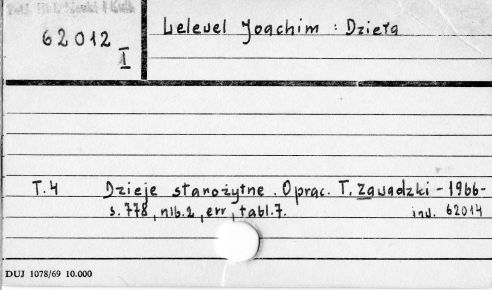 62012
I
Lelewel Joachim : Dzieła
T.4 Dzieje starożytne. Oprac. T. Zawadzki - 1966 -
s. 778, nlb. 2, err, tabl. 7. inw. 62014
DUJ 1078/69 10.000